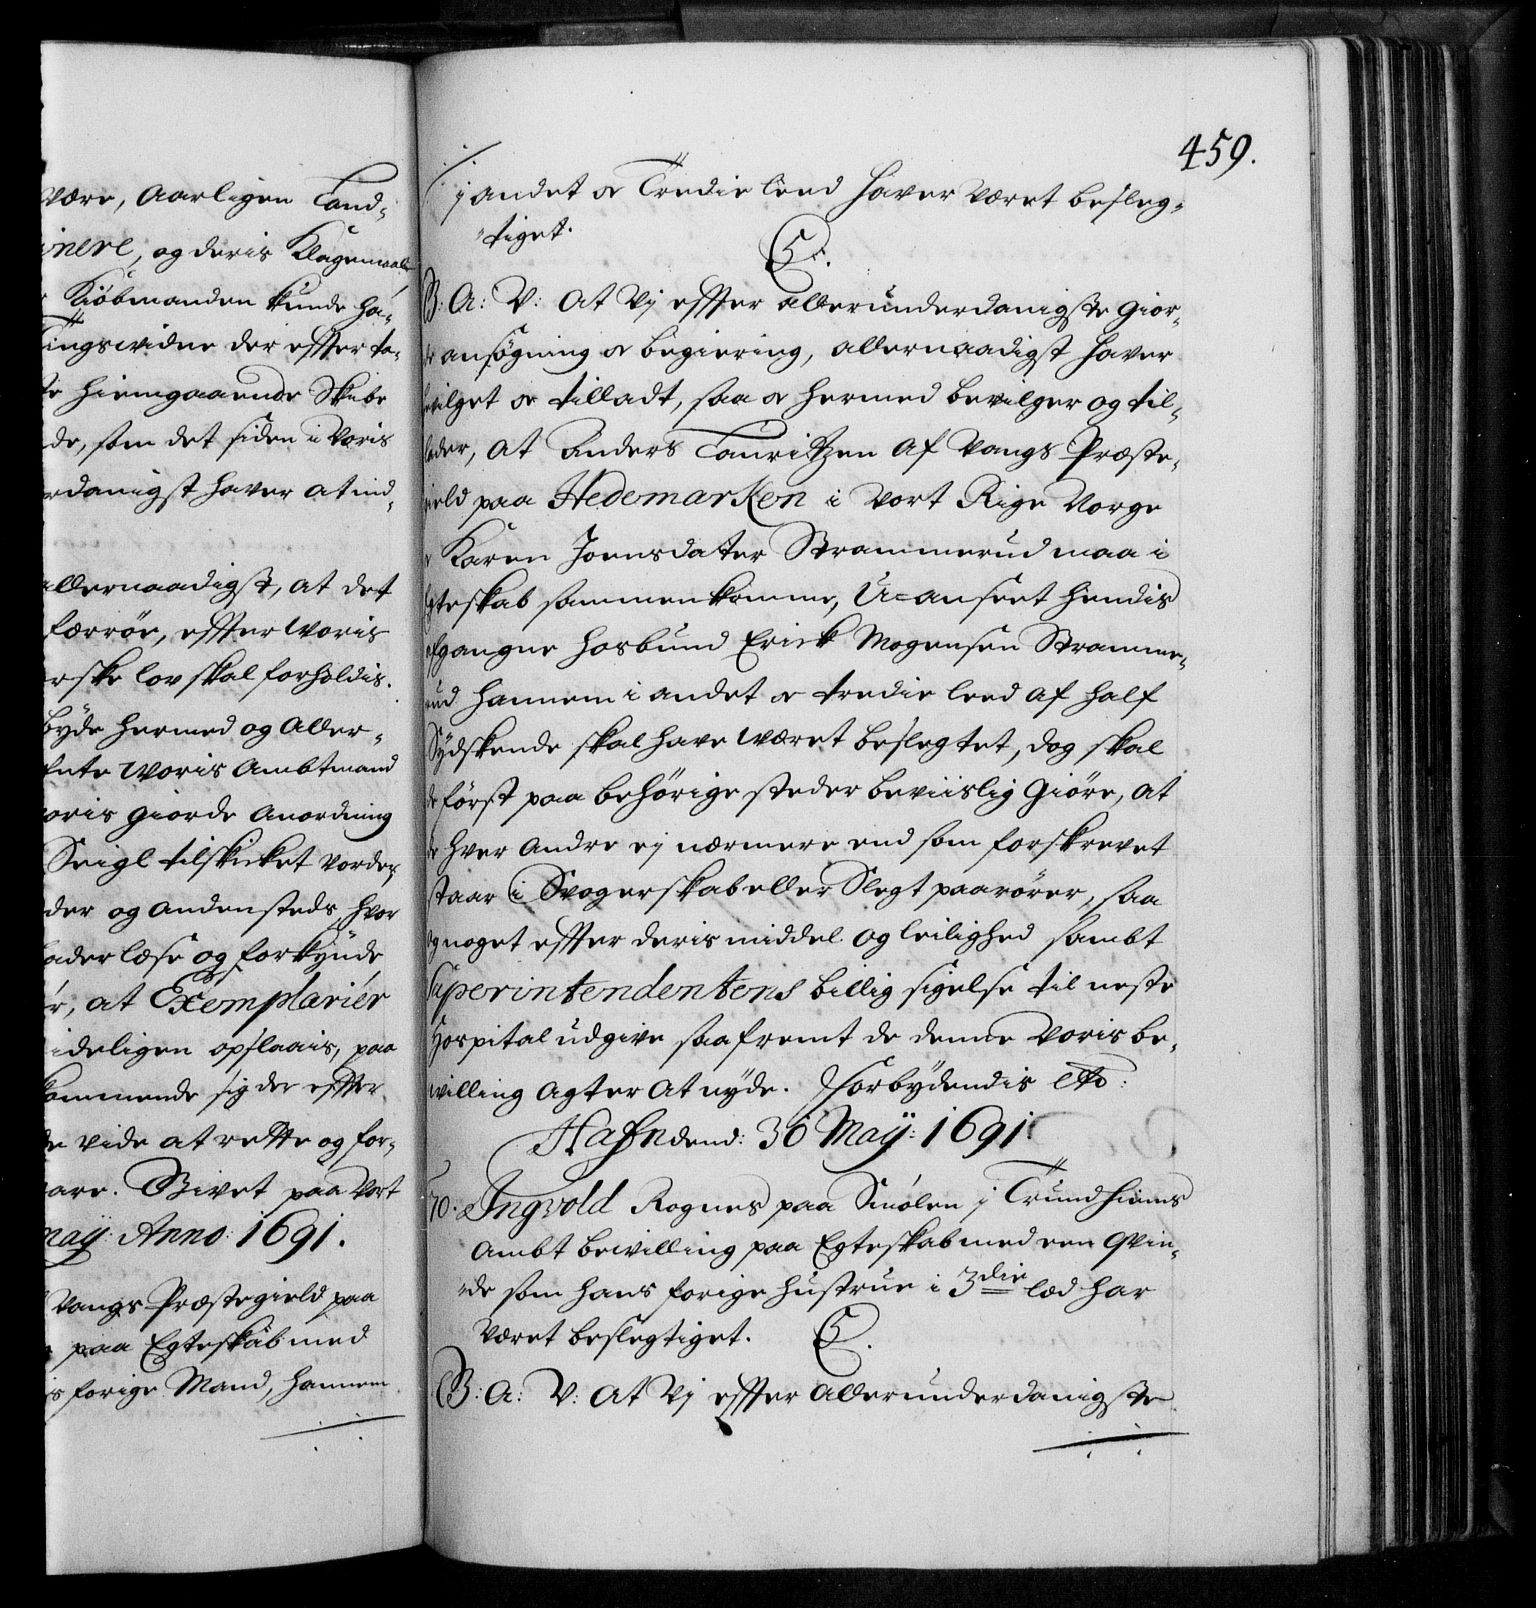 være, Aarligen Land-
inere, og deris Klagemaale
Kiöbmanden kunde ha-
Tingsvidne der effter ta-
te hiemgaaende Skibe
de, som det siden i Voris
rdanigst haver at ind-
allernaadigst, at det
færröe, effter Woris
rske lov skal forholdis.
byde hermed og Aller-
Woris Ambtmand
oris giorde Anordning
Seigl tilskicket vorder,
der og andensteds, hvor
lader læse og forkÿnde
r, at Exemplarier
ideligen opslaais, paa
kommende sig der effter
de vide at rette og for-
are. Givet paa Vort
maÿ: Anno: 1691.
Vangs Præstegield paa
paa Egteskab med
is forige Mand, hannem
459.
j andet oc Tredie leed haver været besleg-
tiget.
C.
B: A: V: at Vj effter allerunderdanigste gior-
de ansøgning oc begiering, allernaadigst haver
bevilget oc tilladt, saa oc hermed bevilger og til-
lader, at Anders Lauritzen af Vangs Præste-
gield paa Hedemarken i Vort Rige Norge
oc Karen Joensdater Strammerud maa i
Egteskab sammenkomme, U-anseet hendis
afgangne hosbund Erick Mogensen Stramme-
rud hannem i andet oc tredie leed af half
Sÿdskende skal have været beslegtet, dog skal
de först paa behörige steder beviislig giöre, at
de hver andre ej nærmere end som forskrevet
staar i Svogerskab eller Slegt paarörer, saa
og noget effter deris middel og leilighed sambt
Superintendentens billig sigelse til neste
Hospital udgive saafremt de denne Voris be-
willing agter at nÿde. Forbÿdendis etc:
Hafn dend: 30 Maÿ: 1691.
70. Ingvold Rognes paa Smølen j Trundhiems
Ambt bevilling paa Egteskab med een Qvin-
de som hans forige hustrue i 3die led har
været beslegtiget. C.
B: A: V: at Vj effter allerunderdanigste